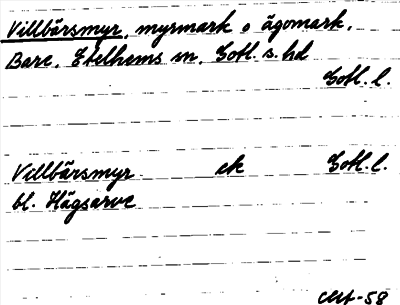 Villbärsmyr, myrmark o ägomark.
Bare, Etelhems sn, Gotl. s. hd
Gotl. l.
Villbärsmyr ek Gotl. l.
bl. Hägsarve
-58